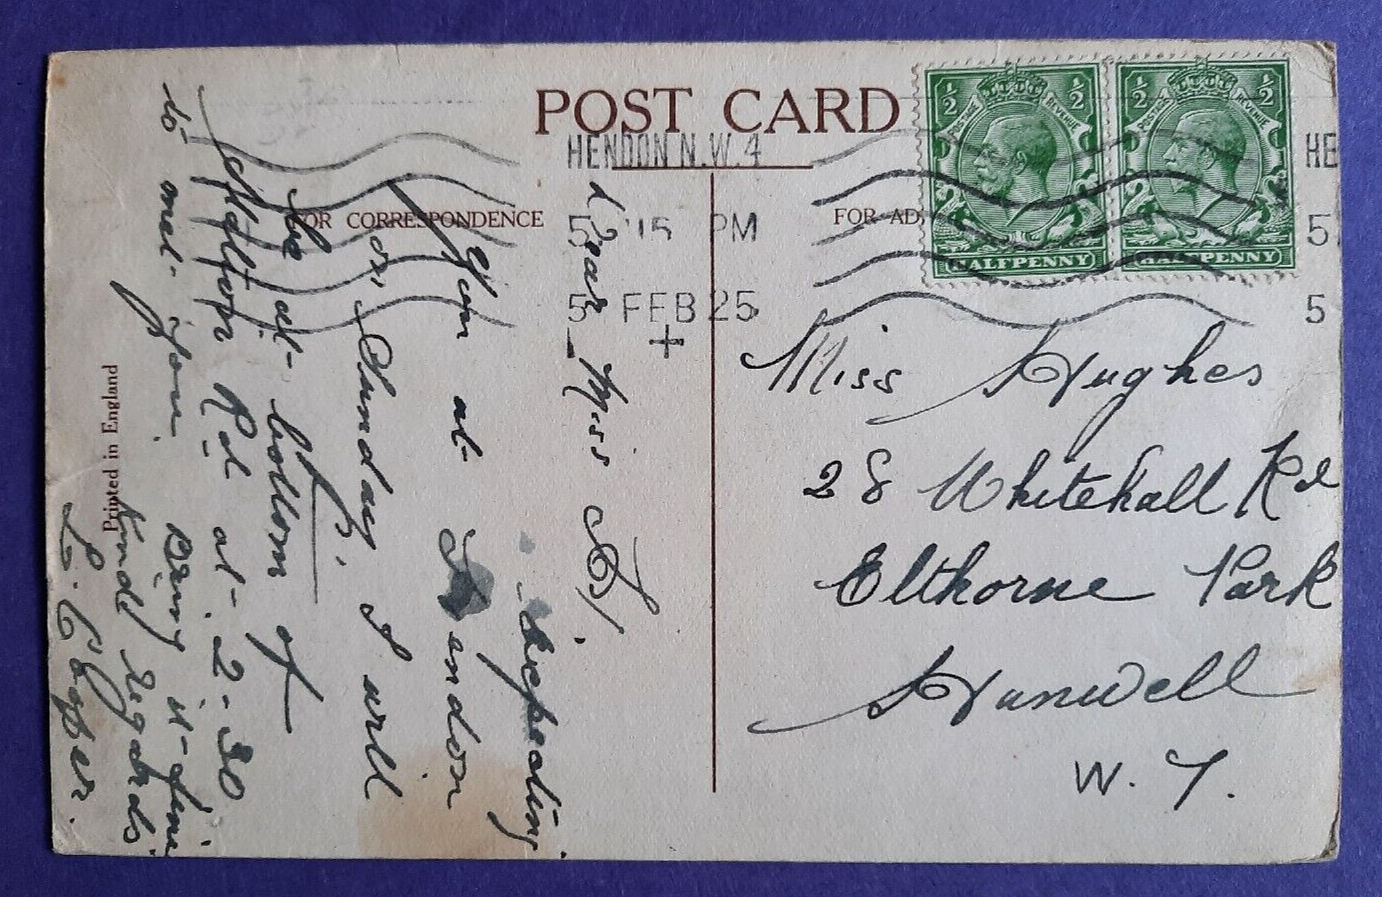 POST CARD
HENDON N.W.4
5 15 PM
5 FEB 25
FOR CORRESPONDENCE
FOR AD
½ ½
POSTAGE REVENUE
HALFPENNY
½ ½
POSTAGE REVENUE
HALFPENNY
HE
5
5
Miss Hughes
28 Whitehall Rd
Elthorne Park
Hanwell
W. 7.
Dear Miss H,
Expecting
you at Hendon
on Sunday, I will
be at bottom of
Rd at 2-30
to meet you. Being it fine
Kind Regards
Printed in England